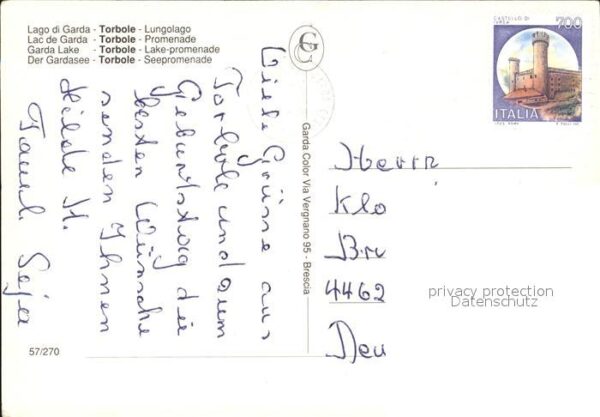 Lago di Garda - Torbole - Lungolago
Lac de Garda - Torbole - Promenade
Garda Lake - Torbole - Lake-promenade
Der Gardasee - Torbole - Seepromenade
GC
CASTELLO DI
700
ITALIA
Viele Grüsse aus
Torbole und zum
Geburtstag die
besten Wünsche
senden Ihnen
Hilde H.
Garda Color Via Vergnano 95 - Brescia
Herrn
Klo
Bru
4462
Deu
privacy protection
Datenschutz
57/270